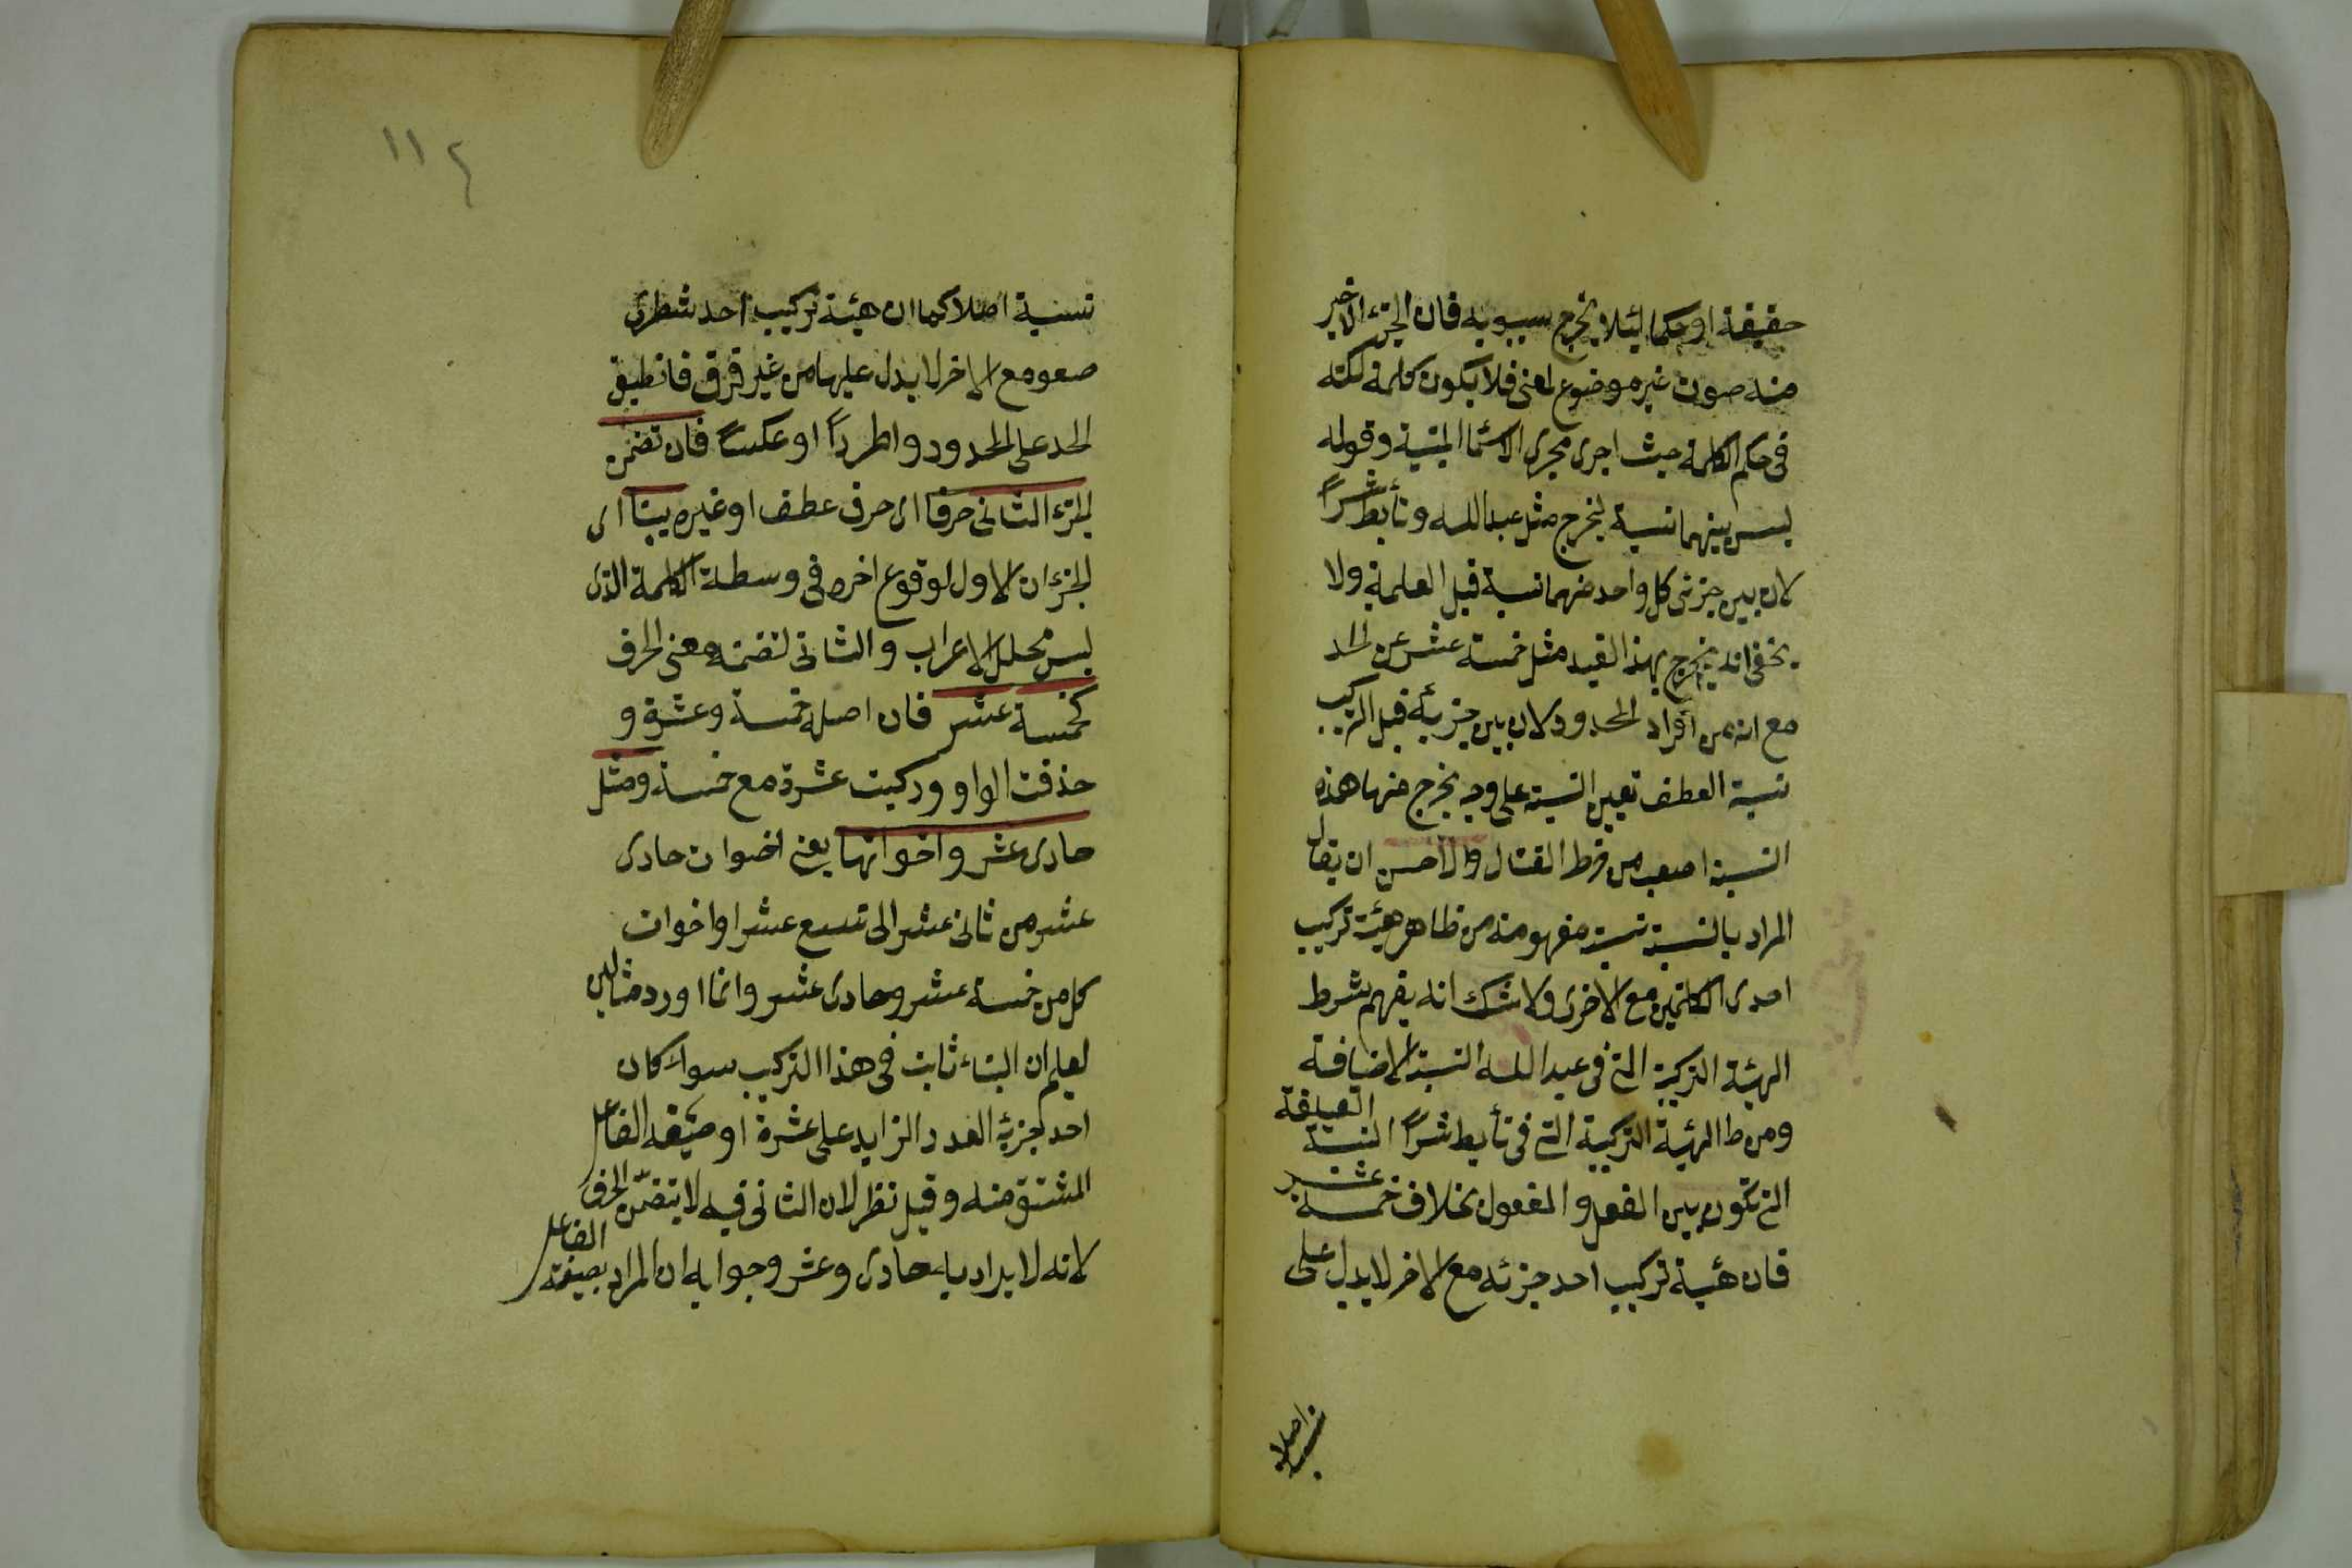 حقيقة او حكما لئلا يخرج سيبويه فان الجزء الاخير
منه صوت غير موضوع لمعنى فلا يكون كلمة لكنه
فى حكم الكلمة حيث اجرى مجرى الاسماء المبنية وقوله
ليس بينهما نسبة ليخرج مثل عبدالله وتأبط شراً
لان بين جزئى كل واحد منهما نسبة قبل العلمية ولا
يخفى انه يخرج بهذا القيد مثل خمسة عشر عن الحد
مع انه من افراد المحدود لان بين جزئيه قبل التركيب
نسبة العطف تعيين النسبة على وجه يخرج منها هذه
النسبة اصعب من خرط القتاد والاحسن ان يقال
المراد بالنسبة نسبة مفهومة من ظاهر هيئة تركيب
احدى الكلمتين مع الاخرى ولا شك انه يفهم شرط
الهيئة التركيبية التى فى عبد الله النسبة الاضافة
ومن ظ الهيئة التركيبية التى فى تأبط شراً النسبة التعليقة
التى تكون بين الفعل والمفعول بخلاف خمسة عشر
فان هيئة تركيب احد جزئه مع الاخر لا يدل على
نسبة اصلا
١١٤
نسبة اصلا كما ان هيئة تركيب احد شطرى
صعو مع الاخر لا يدل عليها من غير فرق فانطبق
الحد على المحدود واطرداً او عكساً فان تضمن
الجزء الثانى حرفا اى حرف عطف او غيره بينا اى
الجزءان الاول لوقوع اخره فى وسطة الكلمة الذى
ليس محلل الاعراب والثانى لتضمنه معنى الحرف
كخمسة عشر فان اصله خمسة وعشرة و
حذفت الواو وركبت عشرة مع خمسة ومثل
حادى عشر واخواتها يعنى اخوات حادى
عشر من ثانى عشر الى تسع عشر او اخوات
كل من خمسة عشر وحادى عشر وانما اورد مثالين
ليعلم ان البناء ثابت فى هذا التركيب سواء كان
احد جزئه العدد الزايد على عشرة او صيغه الفاعل
المشتق منه وقيل نظر لان الثانى فيه لا يتضمن الحرف
لانه لا يراد به حادى وعشر وجوابه ان المراد بصيغة الفاعل